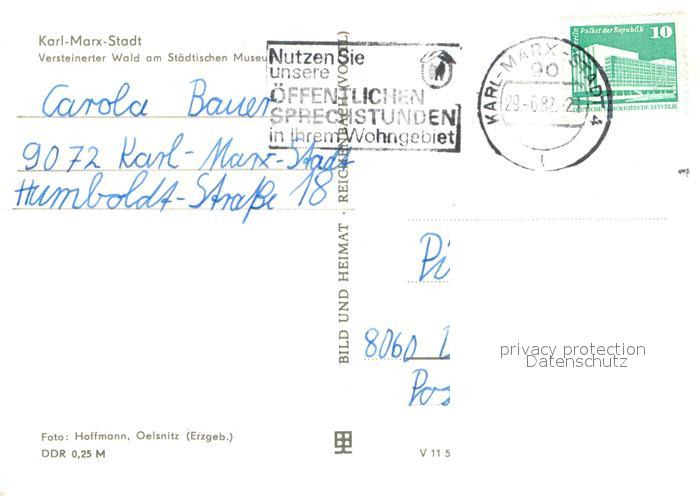 Karl-Marx-Stadt
Versteinerter Wald am Städtischen Museum
Nutzen Sie
unsere
ÖFFENTLICHEN
SPRECHSTUNDEN
in Ihrem Wohngebiet
KARL-MARX-STADT 4
90
29.-6.82.-2
Palast der Republik 10
DEUTSCHE DEMOKRATISCHE REPUBLIK
Carola Bauer
9072 Karl-Marx-Stadt
Humboldt-Straße 18
BILD UND HEIMAT · REICHENBACH (VOGTL)
8060
privacy protection
Datenschutz
Foto: Hoffmann, Oelsnitz (Erzgeb.)
DDR 0,25 M
V 11 5